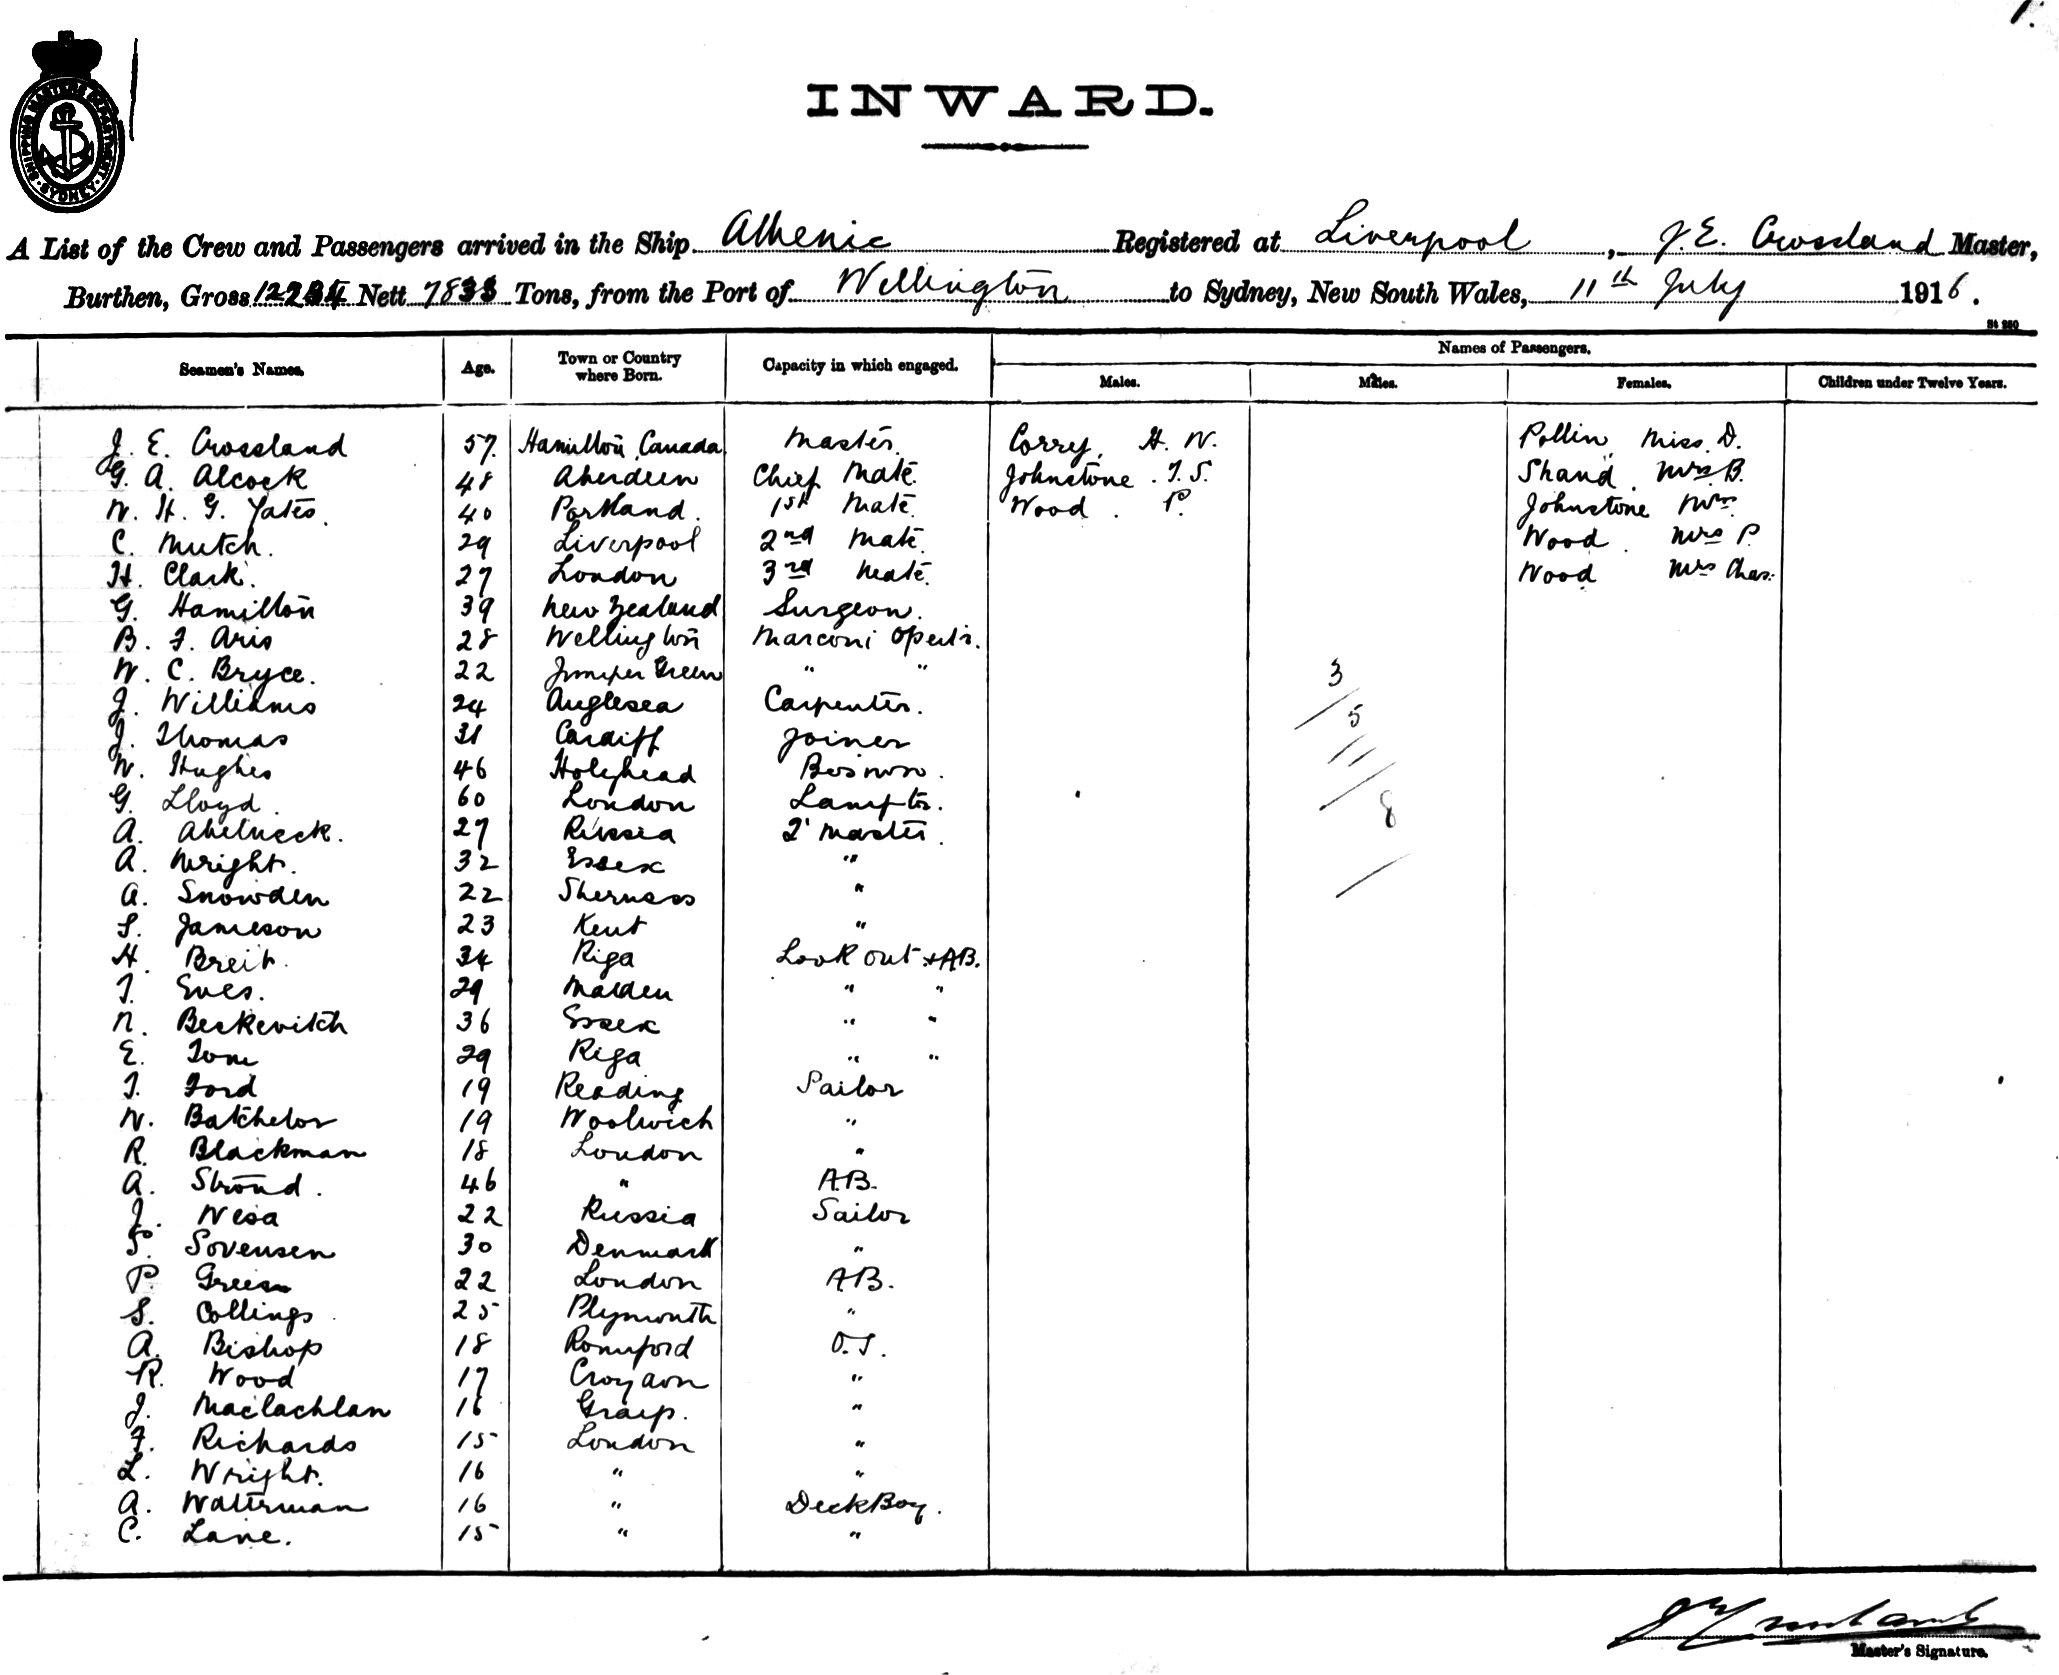 1.
SHIPPING MASTERS DEPARTMENT SYDNEY
INWARD.
A List of the Crew and Passengers arrived in the Ship Athenic Registered at Liverpool, J. E. Crossland Master,
Burthen, Gross 12234 Nett 7833 Tons, from the Port of Wellington to Sydney, New South Wales, 11th July 1916.
St 250
Seamen's Names. Age. Town or Country where Born. Capacity in which engaged. Names of Passengers.
Males. Males. Females. Children under Twelve Years.
J. E. Crossland 57 Hamilton Canada Master. Correy, H. W. Pollin Miss D.
G. A. Alcock 48 Aberdeen Chief Mate. Johnstone. T. S. Shand. Mrs B.
W. H. G. Yates. 40 Portland. 1st Mate. Wood. P. Johnstone Mrs.
C. Mutch. 29 Liverpool 2nd Mate. Wood. Mrs P.
H. Clark. 27 London 3rd Mate. Wood Mrs Chas.
G. Hamilton 39 New Zealand Surgeon.
B. F. Aris 28 Wellington Marconi Operts.
W. C. Bryce. 22 Juniper Green " "
3
J. Williams 24 Anglesea Carpenter.
5
J. Thomas 31 Cardiff Joiner
11
W. Hughes 46 Holyhead Bosun.
G. Lloyd 60 London Lamptr.
8
A. 27 Russia 2' Master.
A. Wright. 32 Essex "
A. Snowden 22 Sherness "
S. Jameson 23 Kent "
H. Breit. 34 Riga Look out + AB.
T. Eves. 29 Malden " "
N. Beskevitch 36 Essex " "
E. Tom 29 Riga " "
T. Ford 19 Reading Sailor
W. Batchelor 19 Woolwich "
R. Blackman 18 London "
A. Stroud. 46 " A.B.
J. Wesa 22 Russia Sailor
P. Sorensen 30 Denmark "
P. Green 22 London A.B.
S. Collings 25 Plymouth "
A. Bishop 18 Romford O.S.
R. Wood 17 Croydon "
J. Maclachlan 16 "
F. Richards 15 London "
L. Wright. 16 " "
A. Waterman 16 " Deck Boy.
C. Lane. 15 " "
J E Crossland
Master's Signature.